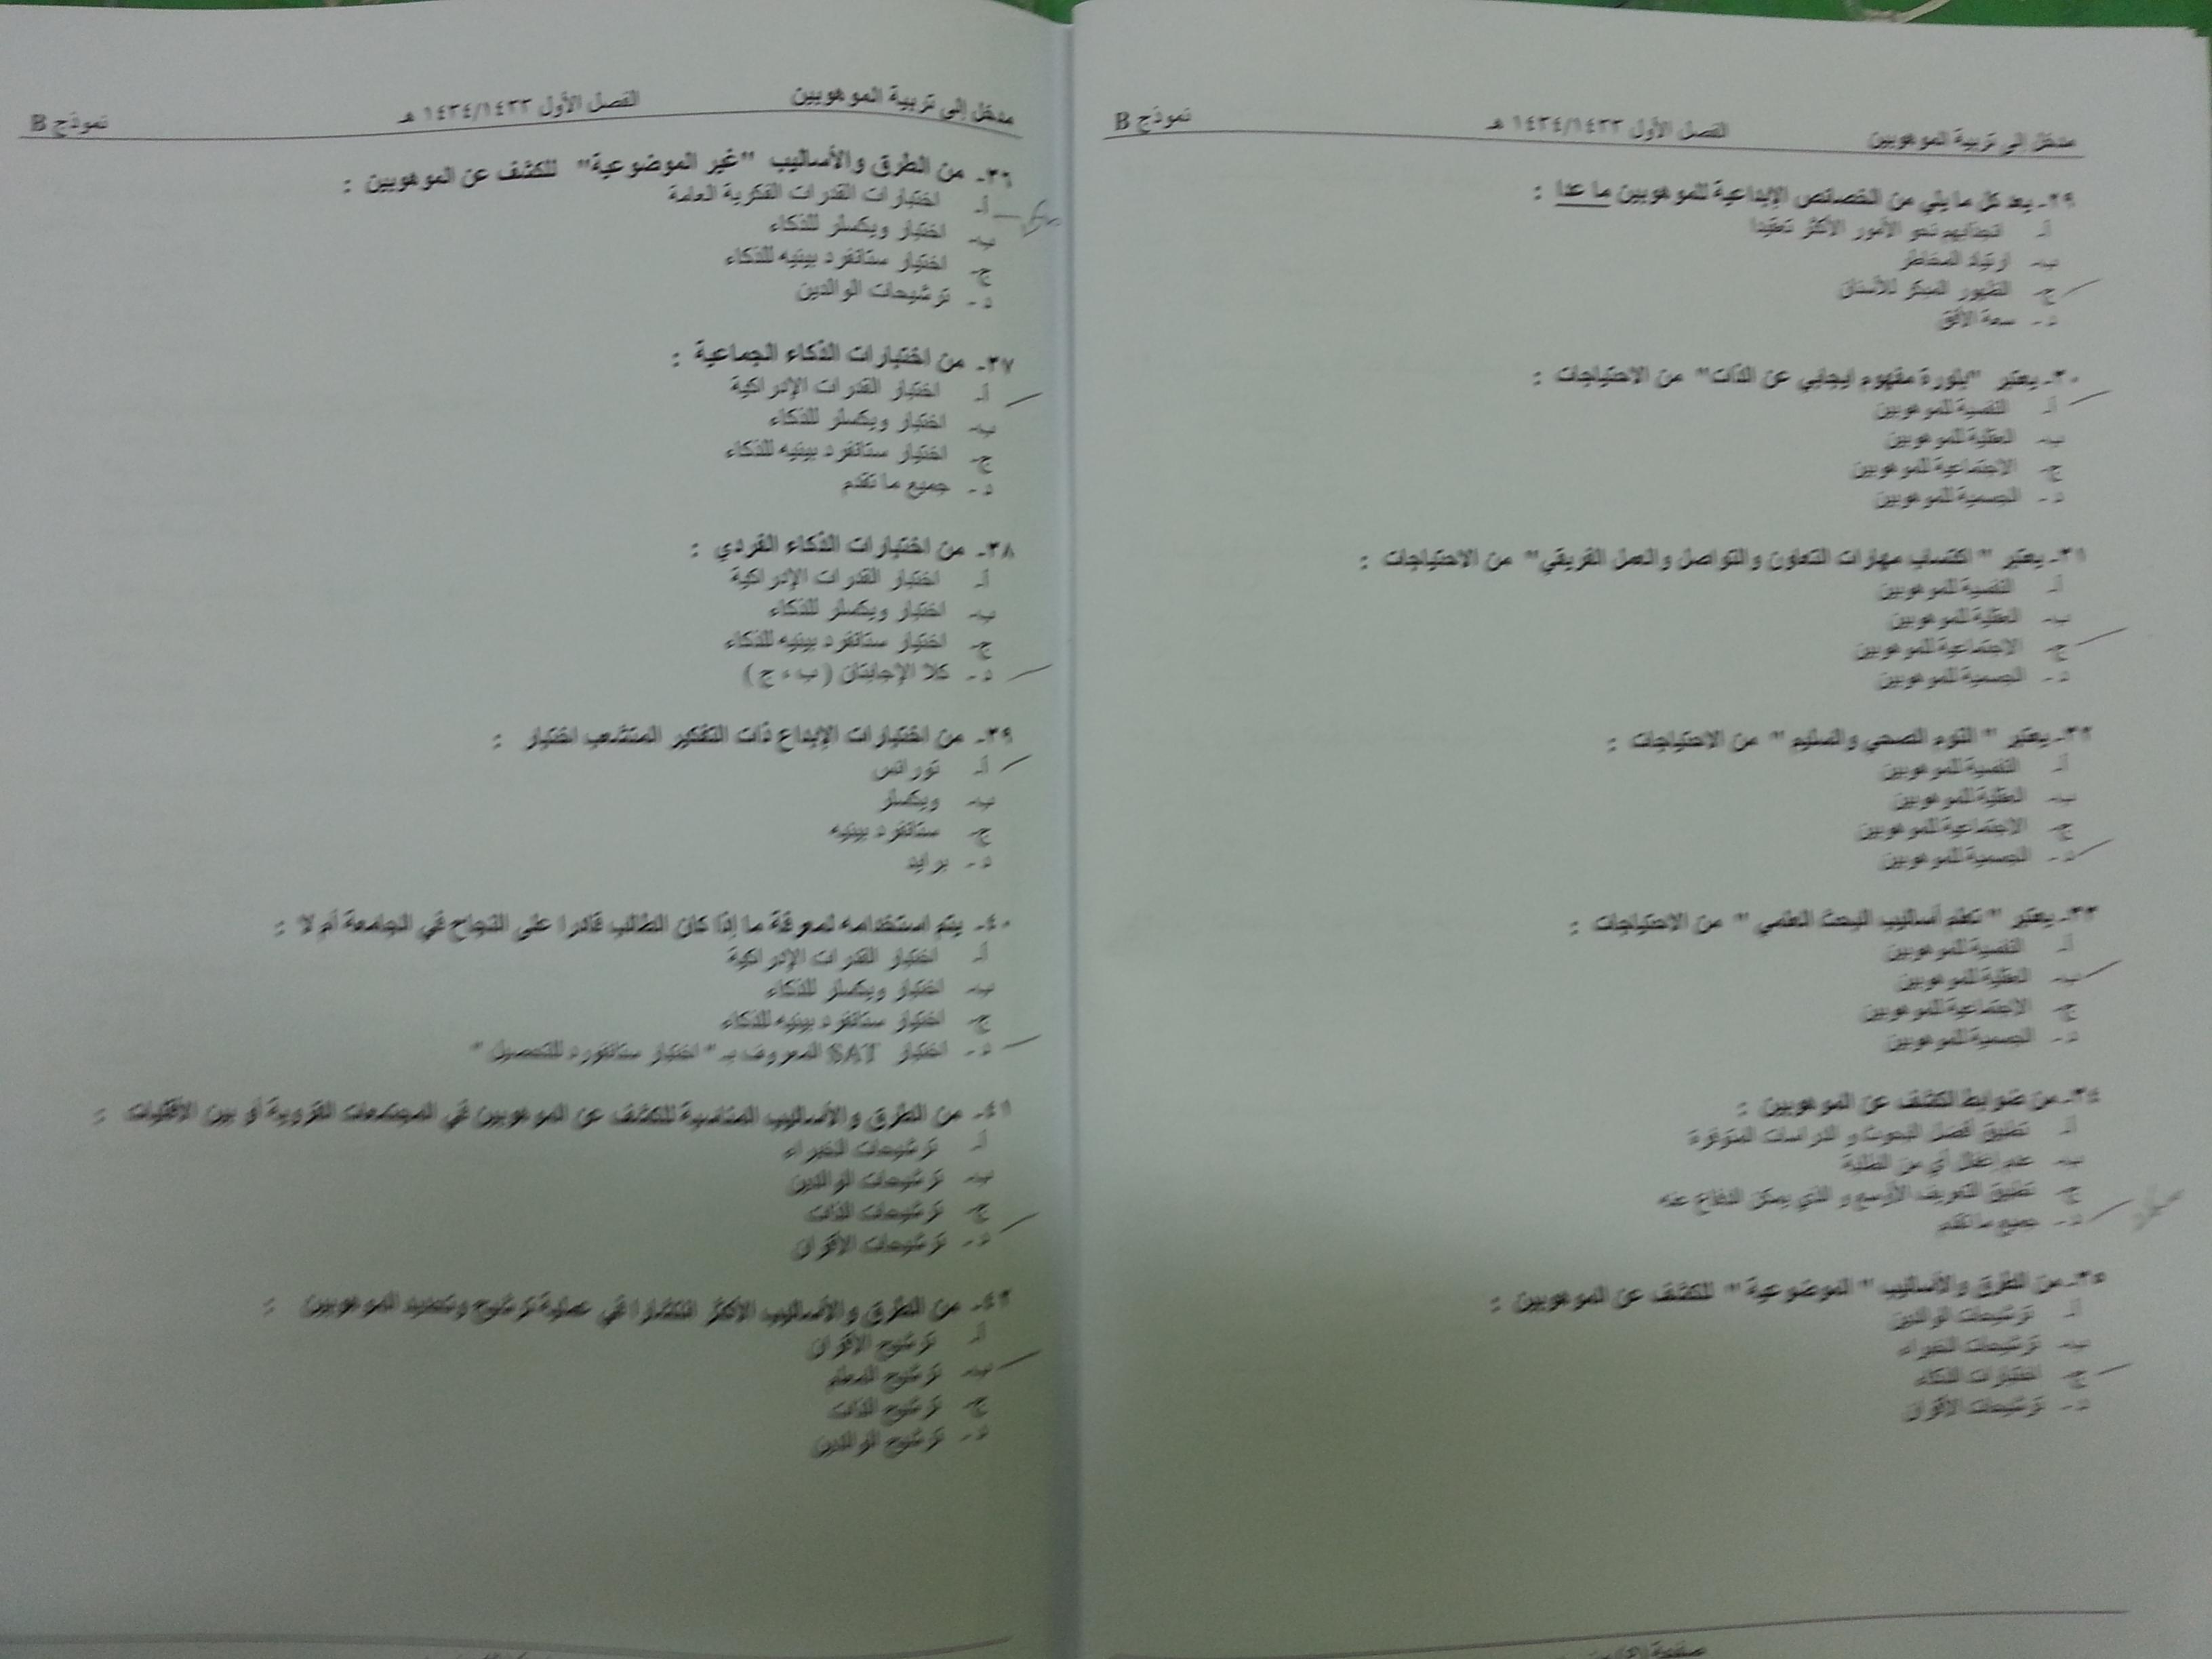 مدخل إلى تربية الموهوبين الفصل الأول ١٤٣٤/١٤٣٣ هـ نموذج B
٢٩- يعد كل ما يلي من الخصائص الإبداعية للموهوبين ما عدا :
أ- انجذابهم نحو الأمور الأكثر تعقيدا
ب- ارتياد المخاطر
ج- الظهور المبكر للأسنان
د- سعة الأفق
٣٠- يعتبر "بلورة مفهوم إيجابي عن الذات" من الاحتياجات :
أ- النفسية للموهوبين
ب- العقلية للموهوبين
ج- الاجتماعية للموهوبين
د- الجسمية للموهوبين
٣١- يعتبر " اكتساب مهارات التعاون والتواصل والعمل الفريقي" من الاحتياجات :
أ- النفسية للموهوبين
ب- العقلية للموهوبين
ج- الاجتماعية للموهوبين
د- الجسمية للموهوبين
٣٢- يعتبر " النوم الصحي والسليم " من الاحتياجات :
أ- النفسية للموهوبين
ب- العقلية للموهوبين
ج- الاجتماعية للموهوبين
د- الجسمية للموهوبين
٣٣- يعتبر " تعلم أساليب البحث العلمي " من الاحتياجات :
أ- النفسية للموهوبين
ب- العقلية للموهوبين
ج- الاجتماعية للموهوبين
د- الجسمية للموهوبين
٣٤- من ضوابط الكشف عن الموهوبين :
أ- تطبيق أفضل البحوث و الدراسات المتوفرة
ب- عدم إغفال أي من الطلبة
ج- تطبيق التعريف الأوسع و الذي يمكن الدفاع عنه
د- جميع ما تقدم
٣٥- من الطرق والأساليب " الموضوعية " للكشف عن الموهوبين :
أ- ترشيحات الوالدين
ب- ترشيحات الخبراء
ج- اختبارات الذكاء
د- ترشيحات الأقران
مدخل إلى تربية الموهوبين الفصل الأول ١٤٣٤/١٤٣٣ هـ نموذج B
٣٦- من الطرق والأساليب "غير الموضوعية" للكشف عن الموهوبين :
أ- اختبارات القدرات الفكرية العامة
ب- اختبار ويكسلر للذكاء
ج- اختبار ستانفرد بينيه للذكاء
د- ترشيحات الوالدين
٣٧- من اختبارات الذكاء الجماعية :
أ- اختبار القدرات الإدراكية
ب- اختبار ويكسلر للذكاء
ج- اختبار ستانفرد بينيه للذكاء
د- جميع ما تقدم
٣٨- من اختبارات الذكاء الفردي :
أ- اختبار القدرات الإدراكية
ب- اختبار ويكسلر للذكاء
ج- اختبار ستانفرد بينيه للذكاء
د- كلا الإجابتان ( ب ، ج )
٣٩- من اختبارات الإبداع ذات التفكير المتشعب اختبار :
أ- تورانس
ب- ويكسلر
ج- ستانفرد بينيه
د- برايد
٤٠- يتم استخدامه لمعرفة ما إذا كان الطالب قادرا على النجاح في الجامعة أم لا :
أ- اختبار القدرات الإدراكية
ب- اختبار ويكسلر للذكاء
ج- اختبار ستانفرد بينيه للذكاء
د- اختبار SAT المعروف بـ " اختبار ستانفورد للتحصيل "
٤١- من الطرق والأساليب المناسبة للكشف عن الموهوبين في المجتمعات القروية أو بين الأقليات :
أ- ترشيحات الخبراء
ب- ترشيحات الوالدين
ج- ترشيحات الذات
د- ترشيحات الأقران
٤٢- من الطرق والأساليب الأكثر انتشارا في عملية ترشيح وتحديد الموهوبين :
أ- ترشيح الأقران
ب- ترشيح المعلم
ج- ترشيح الذات
د- ترشيح الوالدين